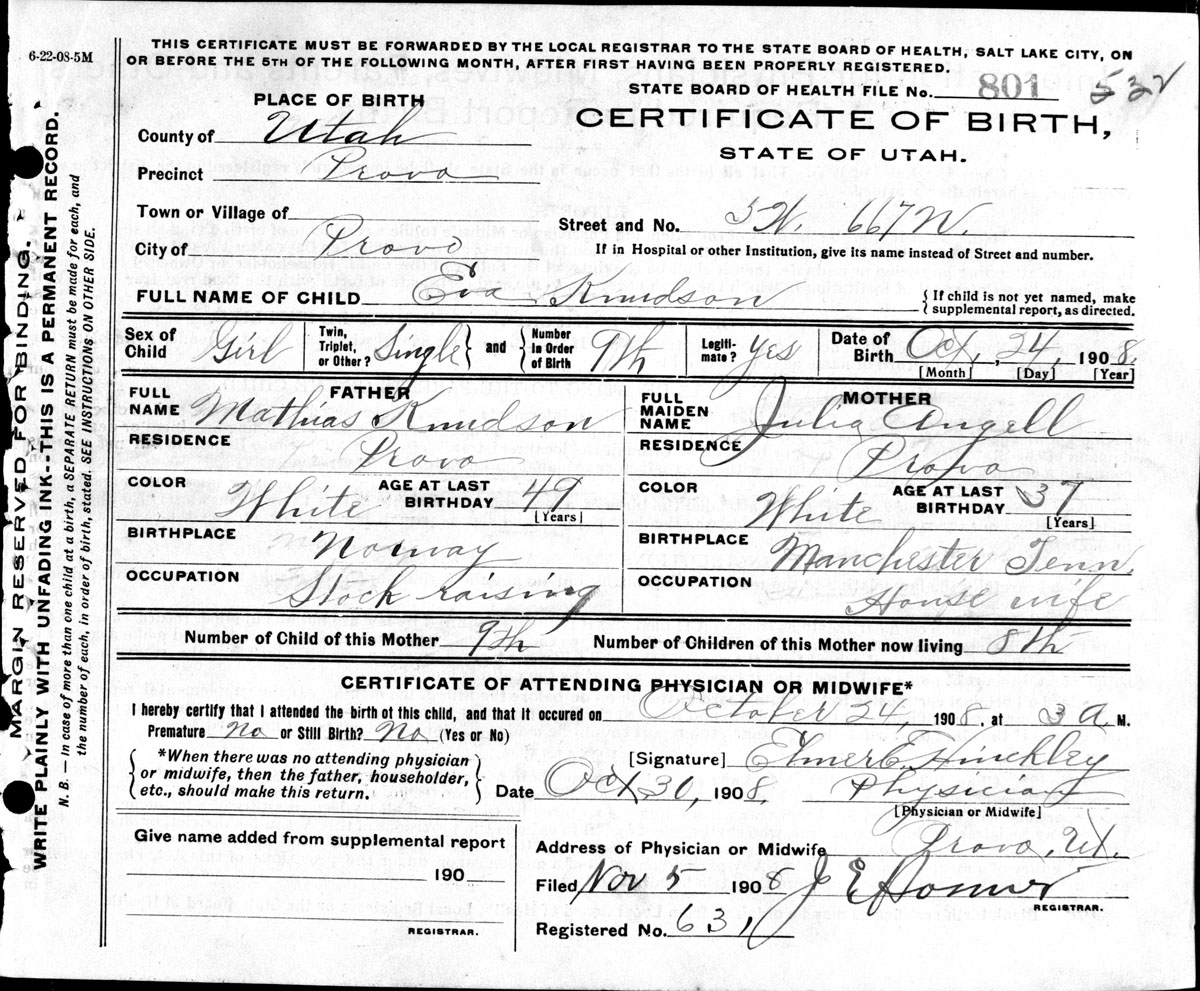 6-22-08-5M
THIS CERTIFICATE MUST BE FORWARDED BY THE LOCAL REGISTRAR TO THE STATE BOARD OF HEALTH, SALT LAKE CITY, ON
OR BEFORE THE 5TH OF THE FOLLOWING MONTH, AFTER FIRST HAVING BEEN PROPERLY REGISTERED.
STATE BOARD OF HEALTH FILE No. 801 532
PLACE OF BIRTH
CERTIFICATE OF BIRTH,
STATE OF UTAH.
County of Utah
Precinct Provo
Town or Village of
Street and No. 667 W.
City of Provo
If in Hospital or other Institution, give its name instead of Street and number.
FULL NAME OF CHILD Eva Knudson
{If child is not yet named, make
supplemental report, as directed.
Sex of Child Girl
Twin, Triplet, or Other? Single } and {
Number in Order of Birth 9th
Legiti-mate? yes
Date of Birth Oct, 24, 1908.
[Month] [Day] [Year]
FATHER
FULL NAME Mathias Knudson
RESIDENCE Provo
COLOR White AGE AT LAST BIRTHDAY 49
[Years]
BIRTHPLACE Norway
OCCUPATION Stock raising
MOTHER
FULL MAIDEN NAME Julia Angell
RESIDENCE Provo
COLOR White AGE AT LAST BIRTHDAY 37
[Years]
BIRTHPLACE Manchester Tenn.
OCCUPATION House wife
Number of Child of this Mother 9th Number of Children of this Mother now living 8th
CERTIFICATE OF ATTENDING PHYSICIAN OR MIDWIFE*
I hereby certify that I attended the birth of this child, and that it occured on October 24, 1908, at 3 A. M.
Premature No or Still Birth? No (Yes or No)
*When there was no attending physician
or midwife, then the father, householder,
etc., should make this return.
[Signature] Elmer E. Hinckley
Date Oct 30, 1908. Physician
[Physician or Midwife]
Give name added from supplemental report
190
REGISTRAR.
Address of Physician or Midwife Provo, Ut.
Filed Nov 5 1908 J E
REGISTRAR.
Registered No. 631
MARGIN RESERVED FOR BINDING.
WRITE PLAINLY WITH UNFADING INK--THIS IS A PERMANENT RECORD.
N. B. — In case of more than one child at a birth, a SEPARATE RETURN must be made for each, and
the number of each, in order of birth, stated. SEE INSTRUCTIONS ON OTHER SIDE.